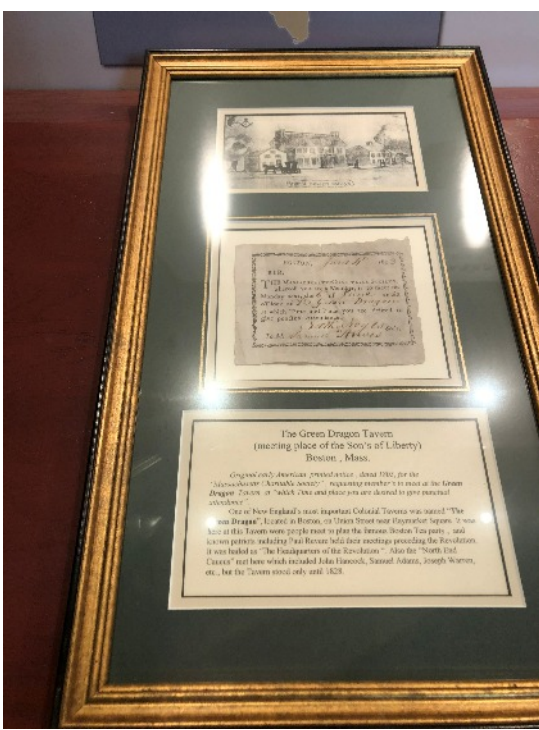 BOSTON, June 4th
SIR,
THE
Monday next, the 6 of June
Green Dragon
at which Time and Place you are desired to
give punctual attendance.
The Green Dragon Tavern
(meeting place of the Son's of Liberty)
Boston , Mass.
Original early American printed notice , dated for the
"Massachusetts Charitable Society" , requesting member's to meet at the Green
Dragon Tavern, at "which Time and place you are desired to give punctual
attendance".
One of New England's most important Colonial Taverns was named "The
Green Dragon", located in Boston, on Union Street near Haymarket Square. It was
here at this Tavern were people meet to plan the famous Boston Tea party , and
known patriots including Paul Revere held their meetings preceding the Revolution.
it was hailed as "The Headquarters of the Revolution ". Also the "North End
Caucus" met here which included John Hancock, Samuel Adams, Joseph Warren,
etc., but the Tavern stood only until 1828.